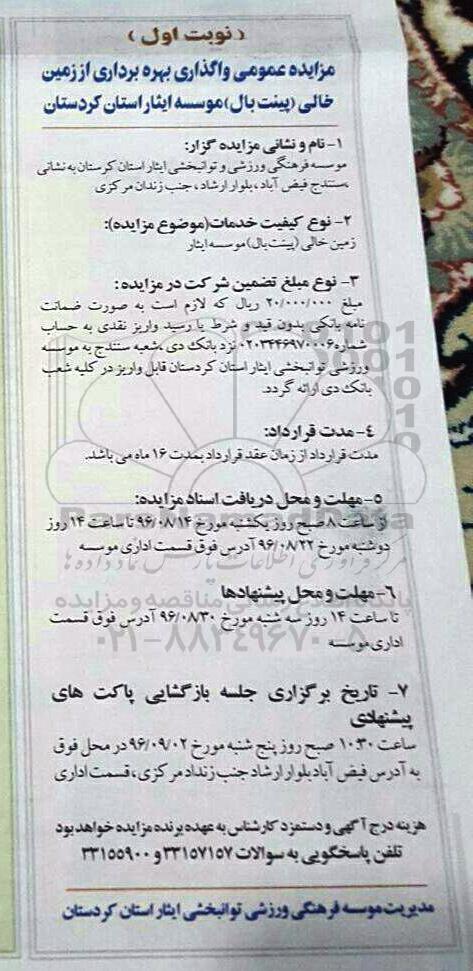 (نوبت اول)
مزایده عمومی واگذاری بهره برداری از زمین
خالی (پینت بال) موسسه ایثار استان کردستان
۱- نام و نشانی مزایده گزار:
موسسه فرهنگی ورزشی و توانبخشی ایثار استان کرستان به نشانی
،سنندج فیض آباد، بلوار ارشاد، جنب زندان مرکزی
۲- نوع کیفیت خدمات(موضوع مزایده):
زمین خالی (پینت بال) موسسه ایثار
۳- نوع مبلغ تضمین شرکت در مزایده:
مبلغ ۲۰/۰۰۰/۰۰۰ ریال که لازم است به صورت ضمانت
نامه بانکی بدون قید و شرط یا رسید واریز نقدی به حساب
شماره ۰۲۰۳۴۴۶۹۷۰۰۰۶ نزد بانک دی ،شعبه سنندج به موسسه
ورزشی توانبخشی ایثار استان کردستان قابل واریز در کلیه شعب
بانک دی ارائه گردد.
۴- مدت قرارداد:
مدت قرارداد از زمان عقد قرارداد بمدت ۱۶ ماه می باشد.
۵- مهلت و محل دریافت اسناد مزایده:
از ساعت ۸ صبح روز یکشنبه مورخ ۹۶/۰۸/۱۴ تا ساعت ۱۴ روز
دوشنبه مورخ ۹۶/۰۸/۲۲ آدرس فوق قسمت اداری موسسه
۶- مهلت و محل پیشنهادها
تا ساعت ۱۴ روز سه شنبه مورخ ۹۶/۰۸/۳۰ آدرس فوق قسمت
اداری موسسه
۷- تاریخ برگزاری جلسه بازگشایی پاکت های
پیشنهادی
ساعت ۱۰:۳۰ صبح روز پنج شنبه مورخ ۹۶/۰۹/۰۲ در محل فوق
به آدرس فیض آباد بلوار ارشاد جنب زنداد مرکزی، قسمت اداری
هزینه درج آگهی و دستمزد کارشناس به عهده برنده مزایده خواهد بود
تلفن پاسخگویی به سوالات ۳۳۱۵۷۱۵۷ و ۳۳۱۵۵۹۰۰
مدیریت موسسه فرهنگی ورزشی توانبخشی ایثار استان کردستان
۰۲۱-۸۸۲۴۹۶۷۰-۵